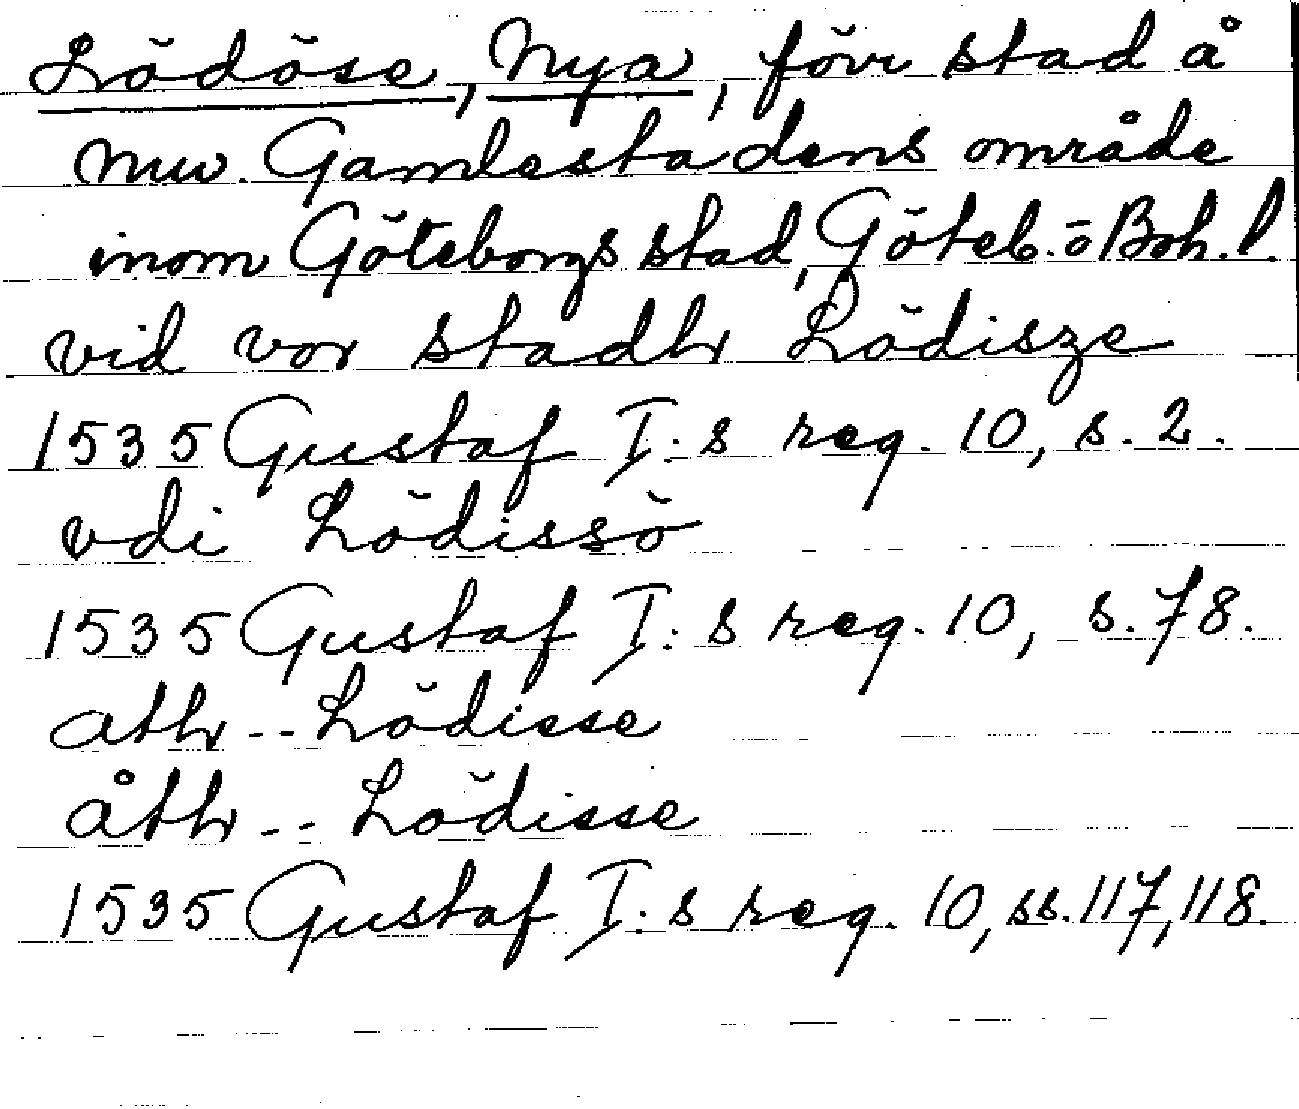 Lödöse, Nya, förr stad å
nuv. Gamlestadens område
inom Göteborgs stad, Göteb. o Boh. l.
vid vor stadh Lödisze
1535 Gustaf I:s reg. 10, s. 2.
vdi Lödissö
1535 Gustaf I:s reg. 10, s. 78.
ath -- Lödisse
åth -- Lödisse
1535 Gustaf I:s reg. 10, ss. 117, 118.